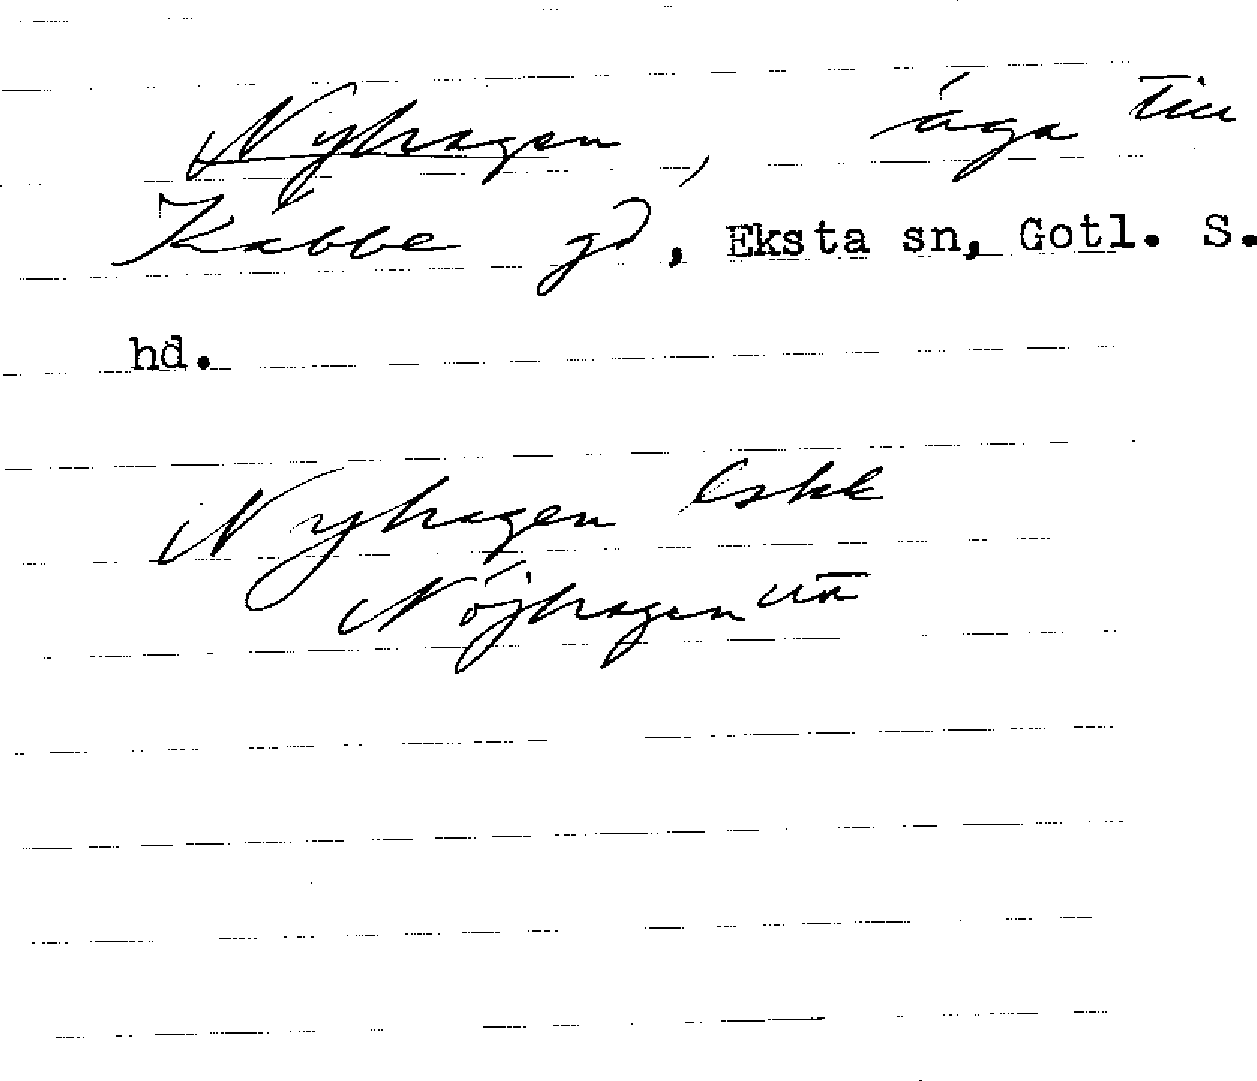 Nyhagen, äga till
Kabbe gd, Eksta sn, Gotl. S.
hd.
Nyhagen Eskk
Nöjhagen